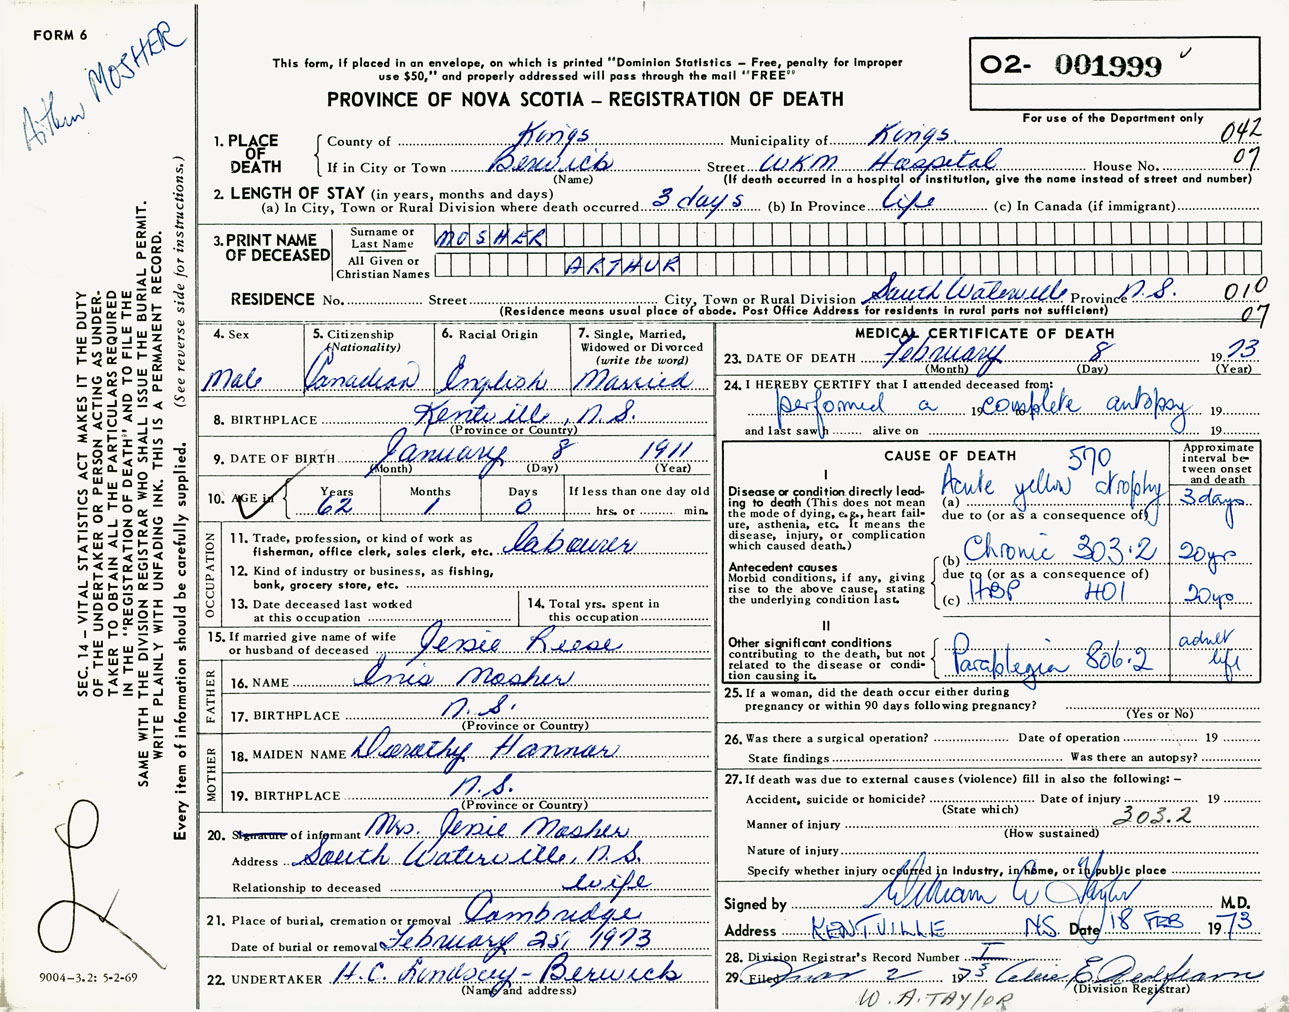 FORM 6
Aitken MOSHER
This form, if placed in an envelope, on which is printed "Dominion Statistics - Free, penalty for improper
use $50," and properly addressed will pass through the mail "FREE"
PROVINCE OF NOVA SCOTIA - REGISTRATION OF DEATH
O2- 001999
For use of the Department only
1. PLACE OF DEATH County of Kings Municipality of Kings 042
If in City or Town Berwick Street WKM Hospital House No. 07
(Name) (If death occurred in a hospital of institution, give the name instead of street and number)
2. LENGTH OF STAY (in years, months and days)
(a) In City, Town or Rural Division where death occurred 3 days (b) In Province life (c) In Canada (if immigrant)
3. PRINT NAME OF DECEASED Surname or Last Name MOSHER
All Given or Christian Names ARTHUR
RESIDENCE No. Street City, Town or Rural Division South Waterville Province N.S. 010
(Residence means usual place of abode. Post Office Address for residents in rural parts not sufficient) 07
4. Sex Male
5. Citizenship (Nationality) Canadian
6. Racial Origin English
7. Single, Married, Widowed or Divorced (write the word) Married
8. BIRTHPLACE Kentville, N.S.
(Province or Country)
9. DATE OF BIRTH January 8 1911
(Month) (Day) (Year)
10. AGE in Years 62 Months 1 Days 0 If less than one day old
hrs. or min.
OCCUPATION
11. Trade, profession, or kind of work as
fisherman, office clerk, sales clerk, etc. labourer
12. Kind of industry or business, as fishing,
bank, grocery store, etc.
13. Date deceased last worked
at this occupation
14. Total yrs. spent in
this occupation
15. If married give name of wife
or husband of deceased Jessie Reese
FATHER
16. NAME Enis Mosher
17. BIRTHPLACE N.S.
(Province or Country)
MOTHER
18. MAIDEN NAME Dorothy Hannar
19. BIRTHPLACE N.S.
(Province or Country)
20. Signature of informant Mrs. Jessie Mosher
Address South Waterville, N.S.
Relationship to deceased wife
21. Place of burial, cremation or removal Cambridge
Date of burial or removal February 28, 1973
22. UNDERTAKER H.C. Lindsay - Berwick
(Name and address)
MEDICAL CERTIFICATE OF DEATH
23. DATE OF DEATH February 8 1973
(Month) (Day) (Year)
24. I HEREBY CERTIFY that I attended deceased from:
performed a 19 complete autopsy 19
and last saw h alive on 19
CAUSE OF DEATH 570
Approximate interval between onset and death
I
Disease or condition directly leading to death (This does not mean
the mode of dying, e.g., heart failure, asthenia, etc. It means the
disease, injury, or complication
which caused death.)
(a) Acute yellow atrophy 3 days
due to (or as a consequence of)
Antecedent causes
Morbid conditions, if any, giving
rise to the above cause, stating
the underlying condition last.
(b) Chronic 303.2 20 yrs
due to (or as a consequence of)
(c) HBP 401 20 yrs
II
Other significant conditions
contributing to the death, but not
related to the disease or condition causing it.
Paraplegia 806.2 adult life
25. If a woman, did the death occur either during
pregnancy or within 90 days following pregnancy?
(Yes or No)
26. Was there a surgical operation? Date of operation 19
State findings Was there an autopsy?
27. If death was due to external causes (violence) fill in also the following: -
Accident, suicide or homicide? Date of injury 19
(State which) 303.2
Manner of injury
(How sustained)
Nature of injury
Specify whether injury occurred in Industry, in home, or in public place
Signed by William A Taylor M.D.
Address KENTVILLE NS. Date 18 FEB 1973
28. Division Registrar's Record Number
29. Filed Mar 2 1973
(Division Registrar)
W. A. TAYLOR
SEC. 14 - VITAL STATISTICS ACT MAKES IT THE DUTY
OF THE UNDERTAKER OR PERSON ACTING AS UNDER-
TAKER TO OBTAIN ALL THE PARTICULARS REQUIRED
IN THE "REGISTRATION OF DEATH" AND TO FILE THE
SAME WITH THE DIVISION REGISTRAR WHO SHALL ISSUE THE BURIAL PERMIT.
WRITE PLAINLY WITH UNFADING INK. THIS IS A PERMANENT RECORD.
Every item of information should be carefully supplied. (See reverse side for instructions.)
9004-3.2: 5-2-69